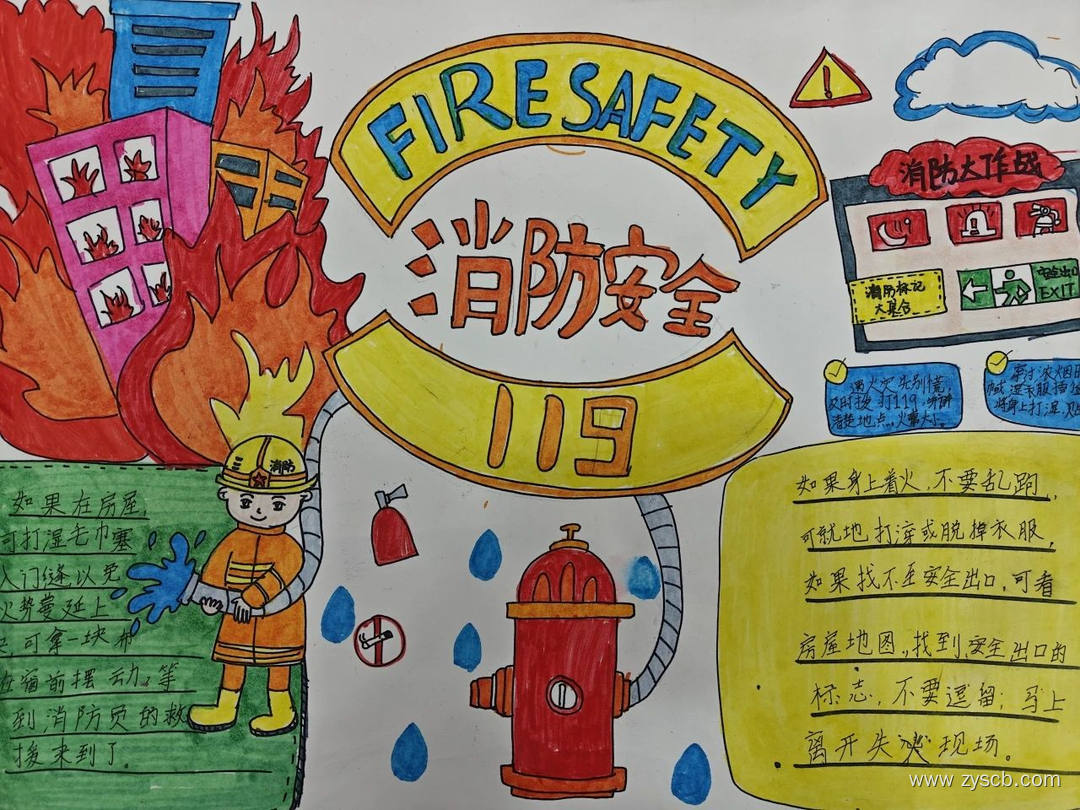 FIRE SAFETY
消防安全
119
消防大作战
消防标记
大集合
安全出口
EXIT
遇火灾先别慌,
及时拨打119,讲解
清楚地点,火常大小
穿过浓烟
将身上打湿
消防
如果在房屋,
可打湿毛巾塞
入门缝以免
火势蔓延上
可拿一块布
在窗前摆动,等
到消防员的救
援来到了.
如果身上着火,不要乱跑,
可就地打滚或脱掉衣服,
如果找不至安全出口,可看
房屋地图,找到安全出口的
标志,不要逗留;马上
离开失火现场。
www.zyscb.com